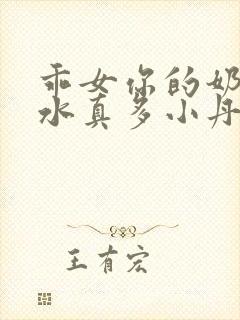 乖女你的奶
水真多小丹
王有宏